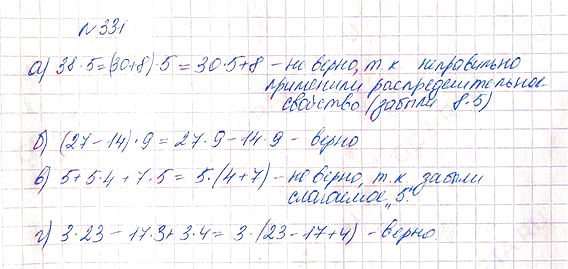 № 331
а) 38·5=(30+8)·5 = 30·5+8 – не верно, т.к неправильно
применили распределительное
свойство (забыли 8·5)
б) (27 – 14)·9 = 27·9 – 14·9 – верно
в) 5+5·4 + 7·5 = 5·(4+7) – не верно, т.к забыли
слагаемое „5".
г) 3·23 – 17·3 + 3·4 = 3·(23 – 17+4) – верно.